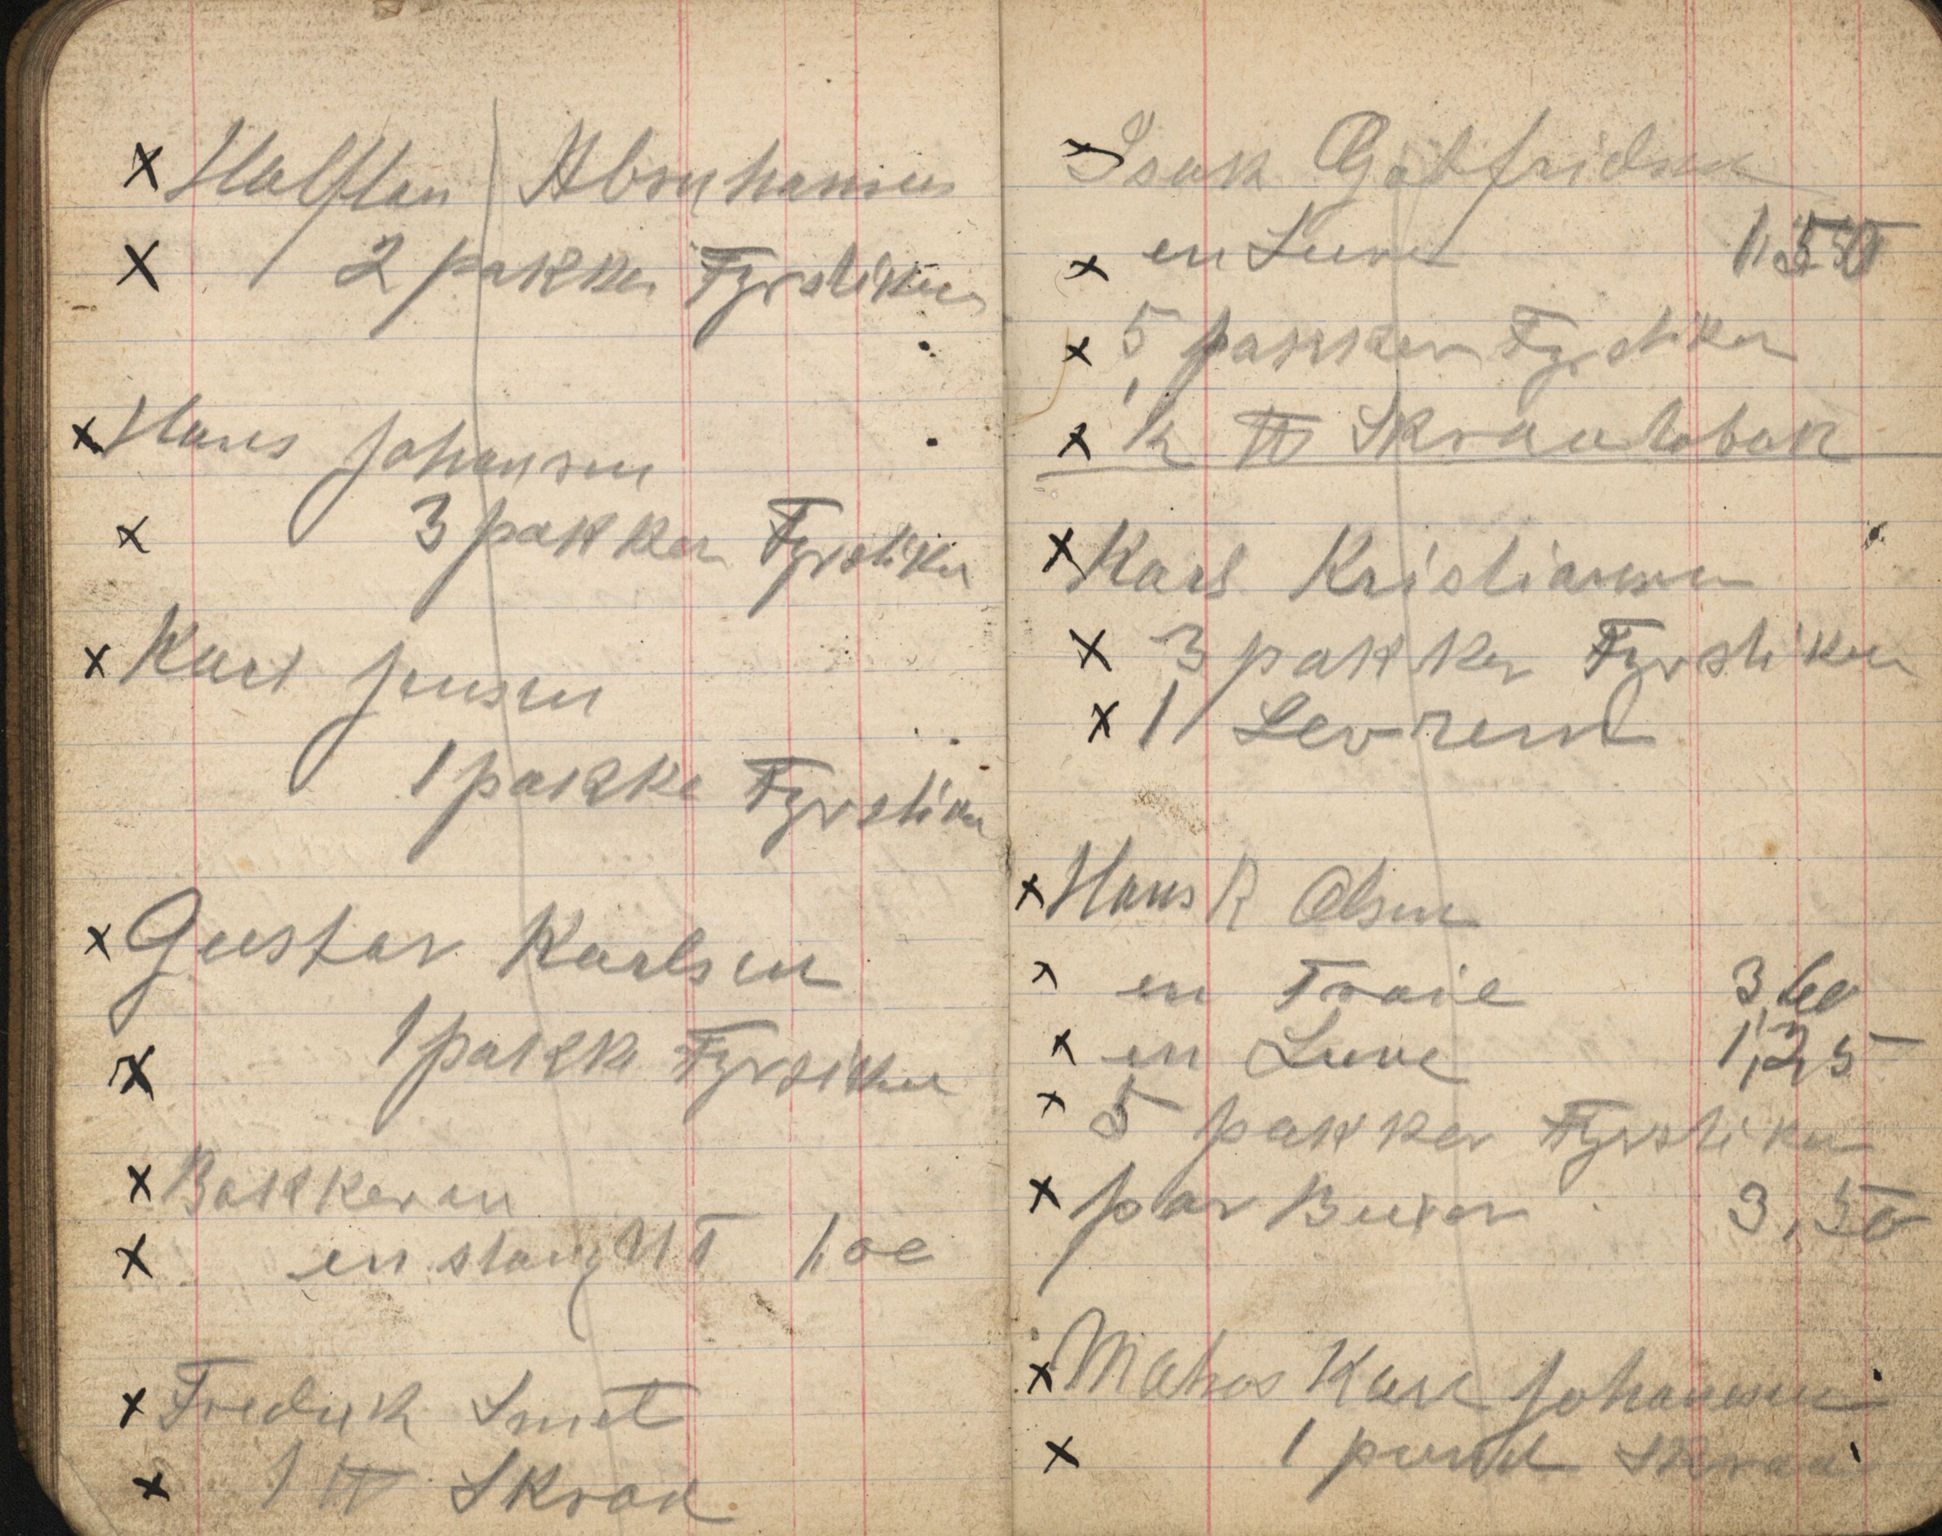 x Halfdan Abrahamsen
x 2 pakker Fyrstiken
x Hans Johansen
x 3 pakker Fyrstiken
x Karl Jensen
1 pakke Fyrstiken
x Gustav Karlsen
x 1 pakke Fyrsiken
x Bakkeran
x en stang NT 1,oe
x Fredrik Smet
x 1 ℔ Skraa
x Isak Gotfridsen
x en Luve 1,50
x 5 pakker Fyrstiken
x 1/2 ℔ Skraatobak
x Karl Kristiansen
x 3 pakker Fyrstiken
x 1 Levrem
x Hans R Olsen
x en Troie 3,60
x en Luve 1,25
x 5 pakker Fyrstiken
x par Buxer 3,50
x Matros Karl Johansen
x 1 pund Skraa